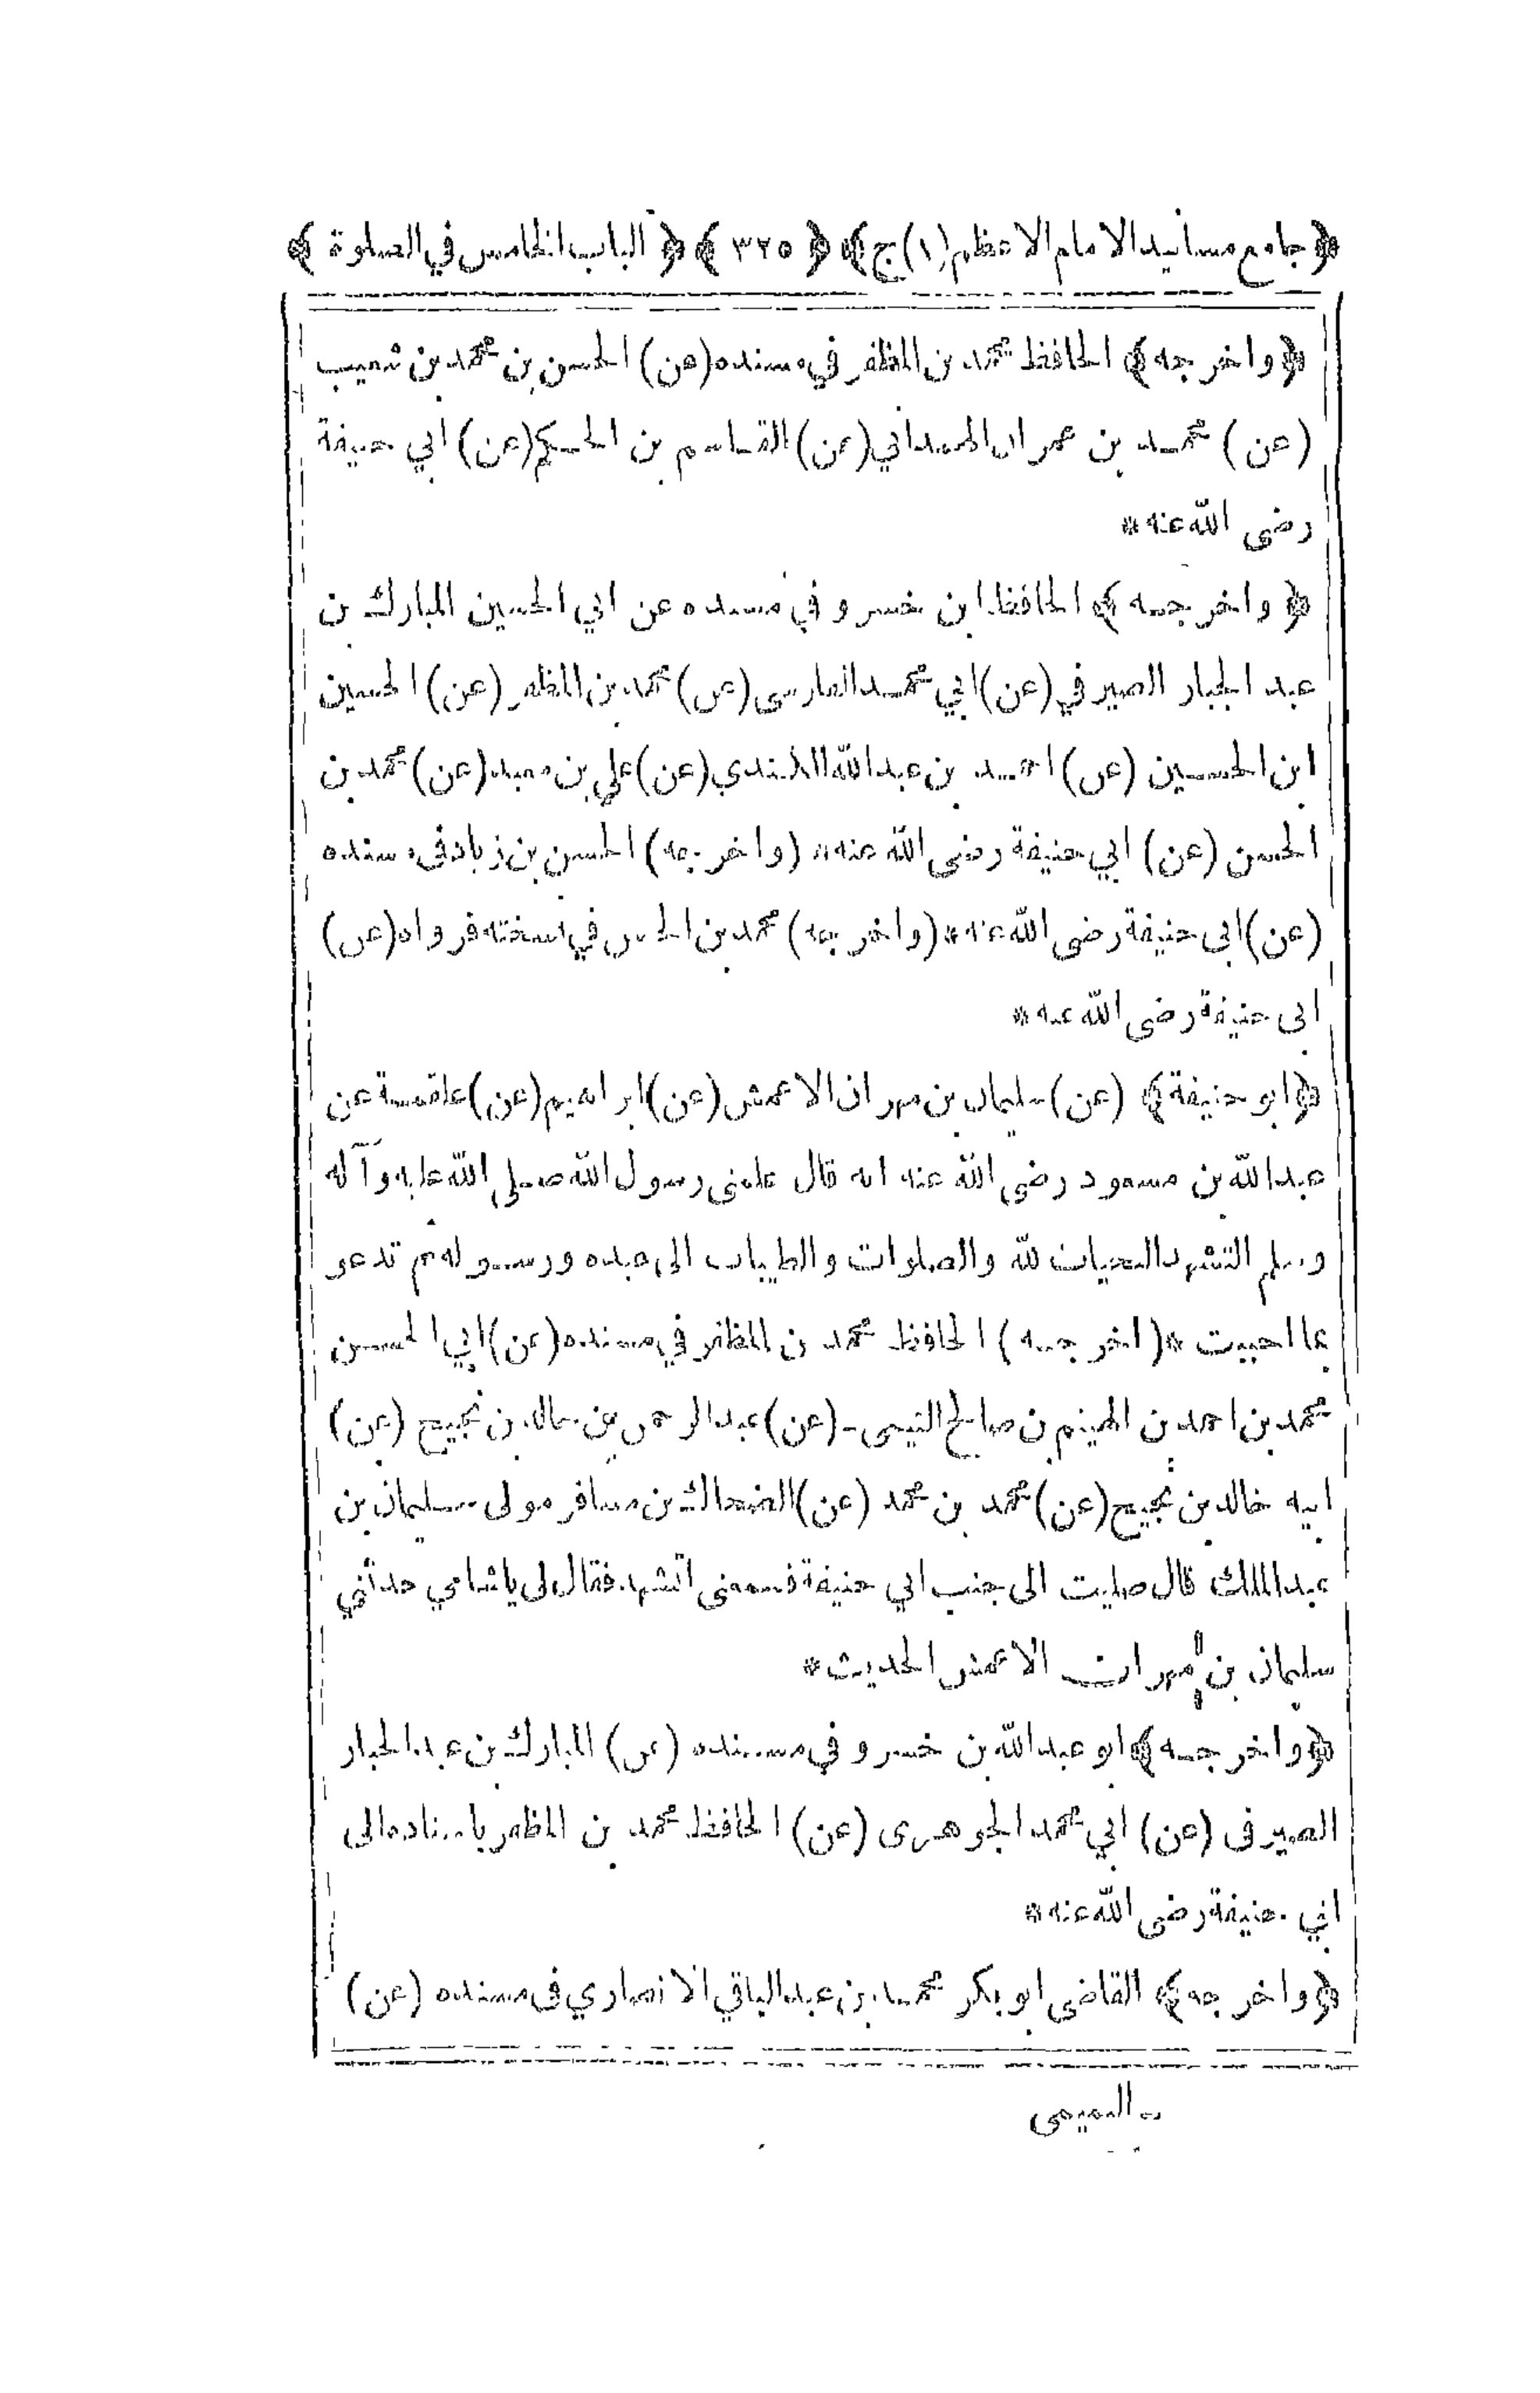 ﴿جامع مسانيد الامام الاعظم (١) ج﴾ ﴿٣٢٥﴾ ﴿الباب الخامس في الصلوة﴾
﴿واخرجه﴾ الحافظ محمد بن المظفر في مسنده (عن) الحسن بن محمد بن شعيب
(عن) محمد بن عمران الهمداني (عن) القاسم بن الحكم (عن) ابي حنيفة
رضى الله عنه *
﴿واخرجه﴾ الحافظ ابن خسرو في مسنده عن ابي الحسين المبارك بن
عبد الجبار الصيرفي (عن) ابي محمد الفارسى (عن) محمد بن المظفر (عن) الحسين
ابن الحسين (عن) احمد بن عبد الله الكندي (عن) علي بن معبد (عن) محمد بن
الحسن (عن) ابي حنيفة رضى الله عنه * (واخرجه) الحسن بن زياد فى مسنده
(عن) ابى حنيفة رضى الله عنه * (واخرجه) محمد بن الحسن في نسخته فرواه (عن)
ابى حنيفة رضى الله عنه *
﴿ابو حنيفة﴾ (عن) سليمان بن مهران الاعمش (عن) ابراهيم (عن) علقمة عن
عبد الله بن مسعود رضى الله عنه انه قال علمنى رسول الله صلى الله عليه وآله
وسلم التشهد التحيات لله والصلوات والطيبات الى عبده ورسوله ثم تدعو
بما احببت * (اخرجه) الحافظ محمد بن المظفر في مسنده (عن) ابي الحسن
محمد بن احمد بن الهيثم بن صالح التيمى ـ (عن) عبد الرحمن بن خالد بن نجيح (عن)
ابيه خالد بن نجيح (عن) محمد بن محمد (عن) الضحاك بن مسافر مولى سليمان بن
عبد الملك قال صليت الى جنب ابي حنيفة فسمعنى اتشهد فقال لى ياشامي حدثني
سليمان بن مهران الاعمش الحديث *
﴿واخرجه﴾ ابو عبد الله بن خسرو في مسنده (عن) المبارك بن عبد الجبار
الصيرفى (عن) ابي محمد الجوهرى (عن) الحافظ محمد بن المظفر باسناده الى
ابي حنيفة رضى الله عنه *
﴿واخرجه﴾ القاضى ابو بكر محمد بن عبد الباقي الانصاري فى مسنده (عن)
ـ التميمى